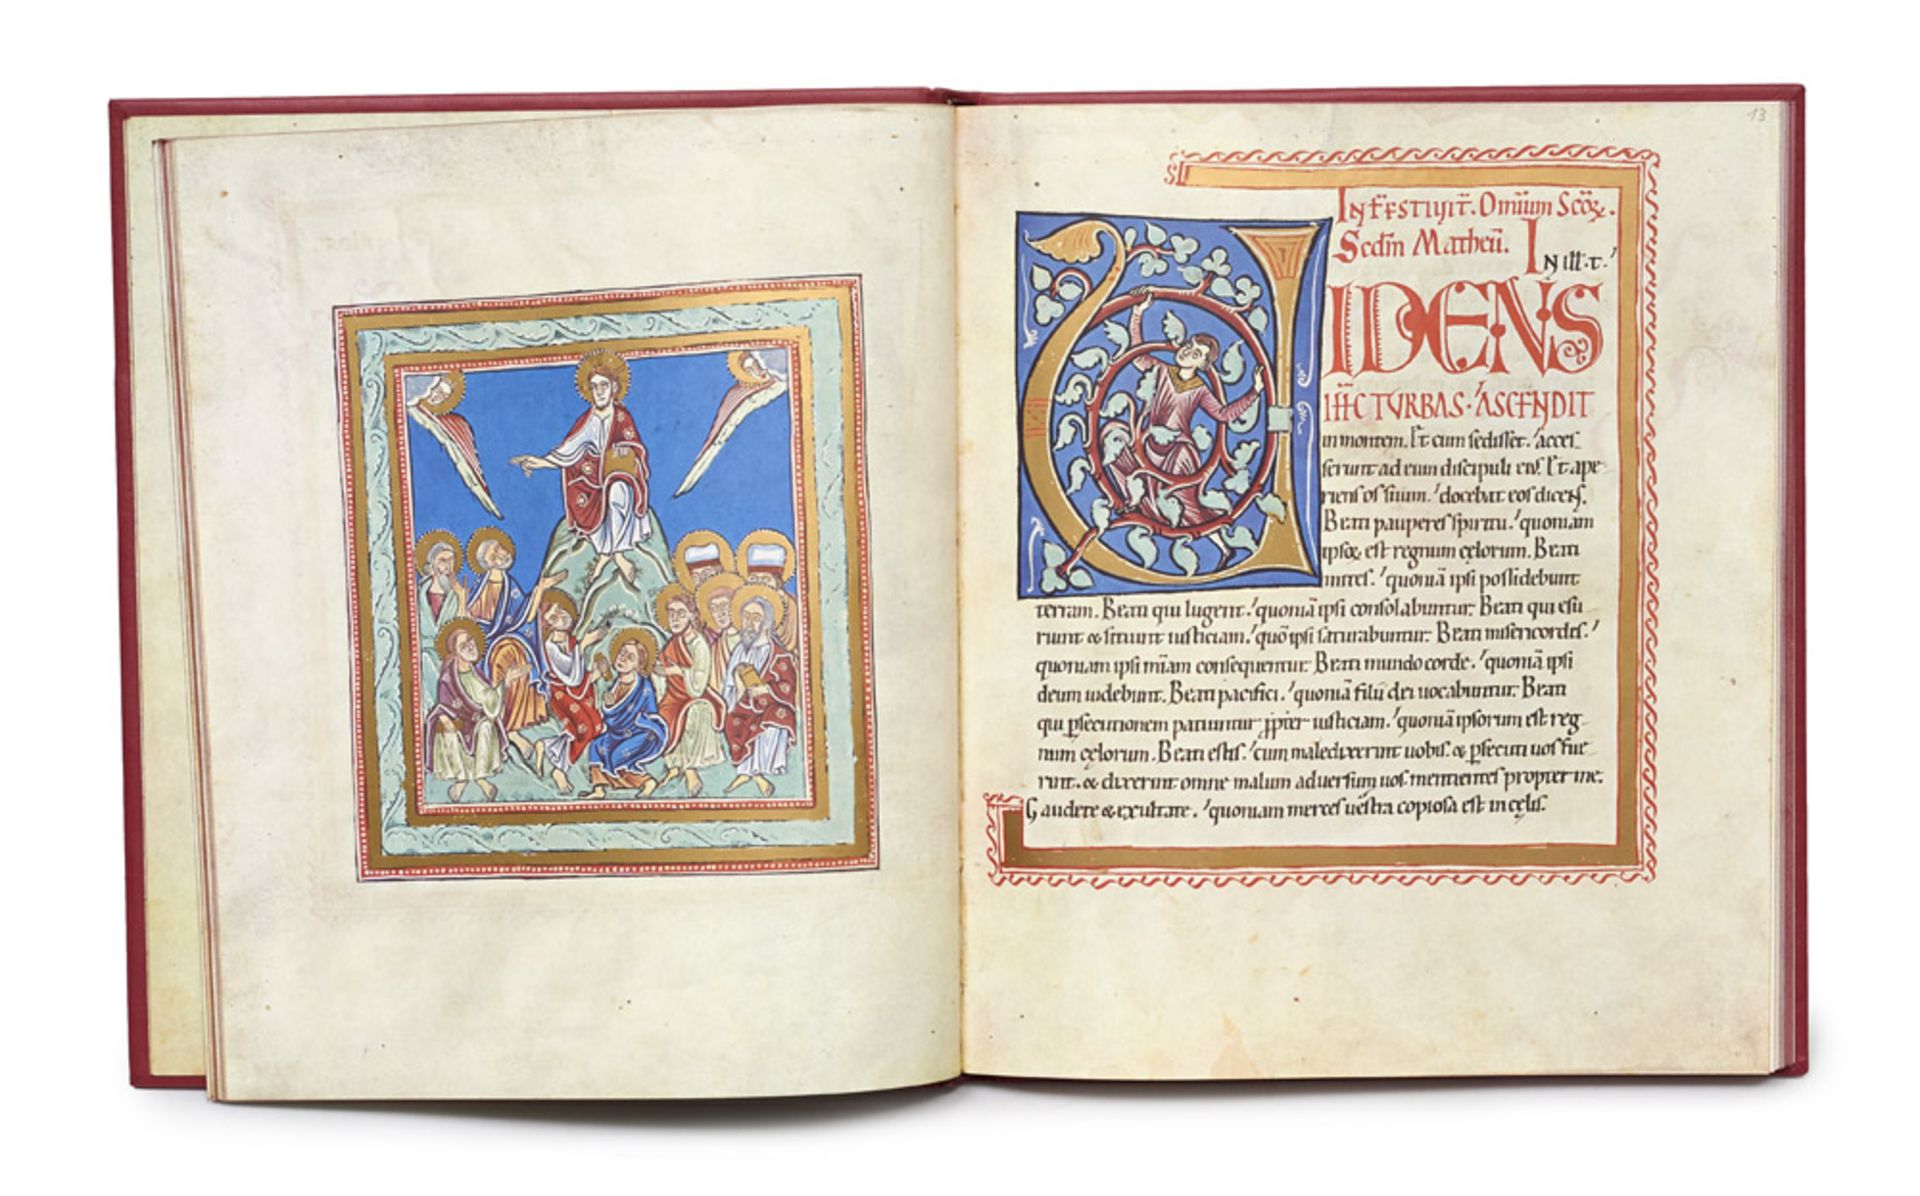 13
SI
IN FESTIVIT̄. Omīum Scōꝝ.
Scdm̄ Matheū. IN ill̄.t.
VIDENS
IH̄C TVRBAS.ASCENDIT
in montem. Et cum sedisset. acces
serunt ad eum discipuli eius. Et ape
riens os suum. docebat eos dicens.
Beati pauperes spiritu. quoniam
ipsoꝝ est regnum cęlorum. Beati
mites. quoniā ipsi possidebunt
terram. Beati qui lugent. quoniā ipsi consolabuntur. Beati qui esu
riunt & sitiunt iusticiam. quō ipsi saturabuntur. Beati misericordes.
quoniam ipsi miām consequentur. Beati mundo corde. quoniā ipsi
deum uidebunt. Beati pacifici. quoniā filii dei uocabuntur. Beati
qui ꝑsecutionem patiuntur ꝓpter iusticiam. quoniā ipsorum est reg
num cęlorum. Beati estis. cum maledixerint uobis. & ꝑsecuti uos fue
rint. & dixerint omne malum aduersum uos mentientes propter me.
Gaudete & exultate. quoniam merces uestra copiosa est in cęlis.